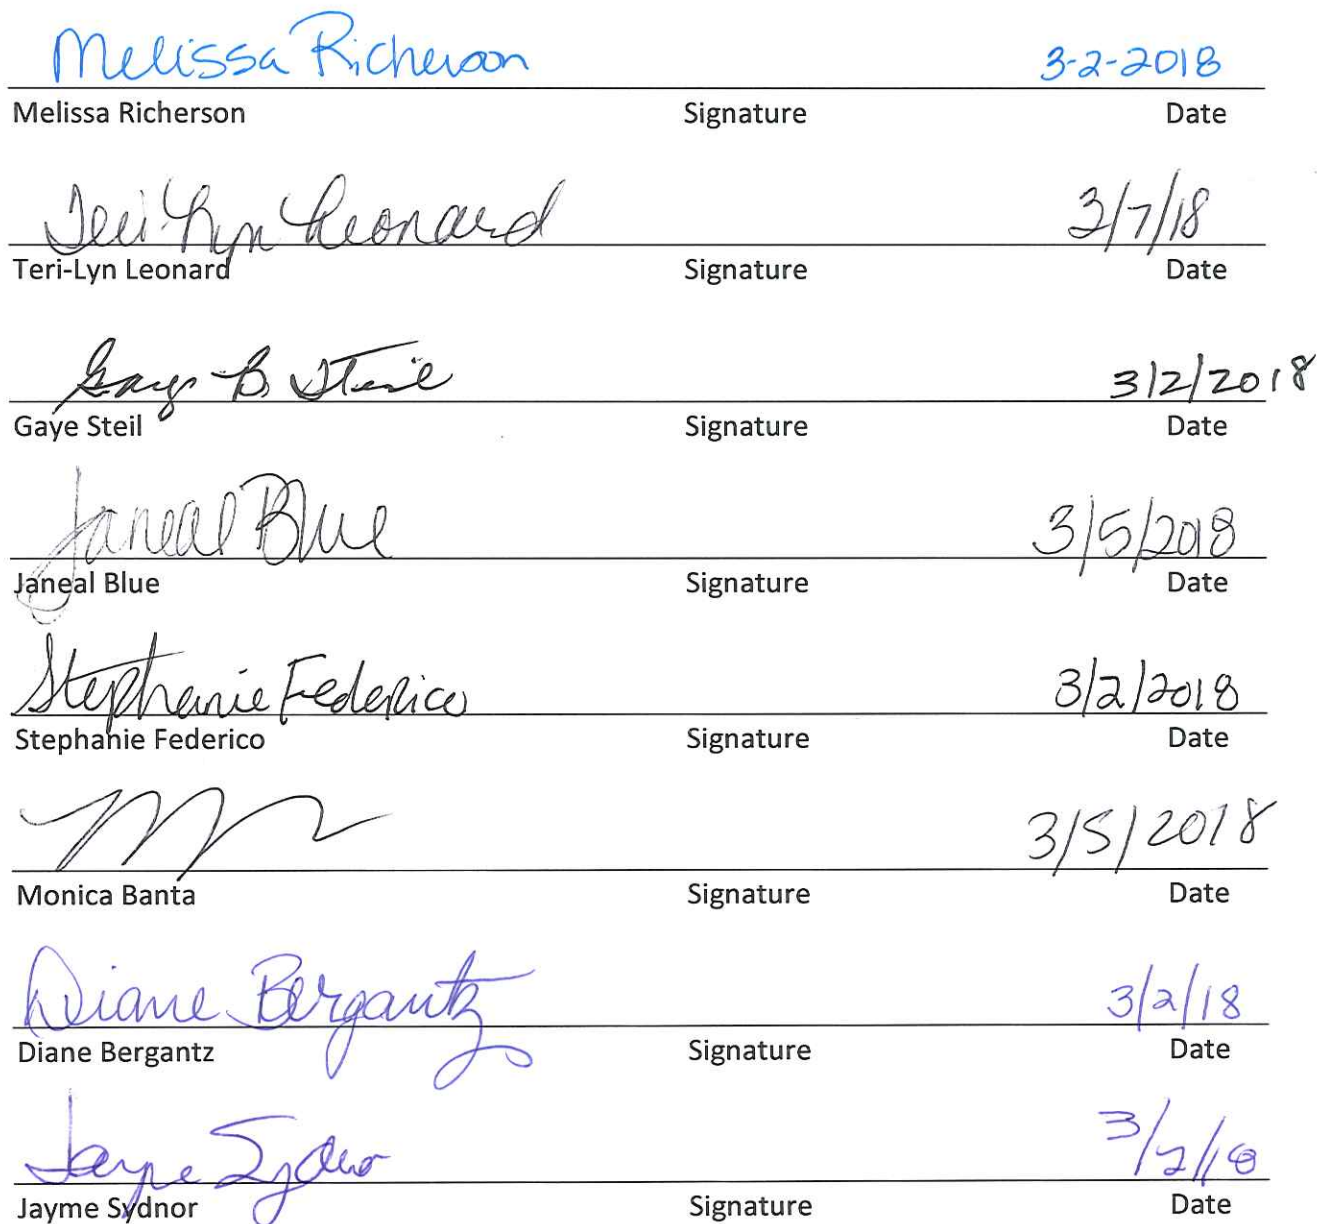 Melissa Richerson 3-2-2018
Melissa Richerson Signature Date
Teri-Lyn Leonard 3/7/18
Teri-Lyn Leonard Signature Date
Gaye B. Steil 3/2/2018
Gaye Steil Signature Date
Janeal Blue 3/5/2018
Janeal Blue Signature Date
Stephanie Federico 3/2/2018
Stephanie Federico Signature Date
3/5/2018
Monica Banta Signature Date
Diane Bergantz 3/2/18
Diane Bergantz Signature Date
Jayme Sydnor 3/2/18
Jayme Sydnor Signature Date